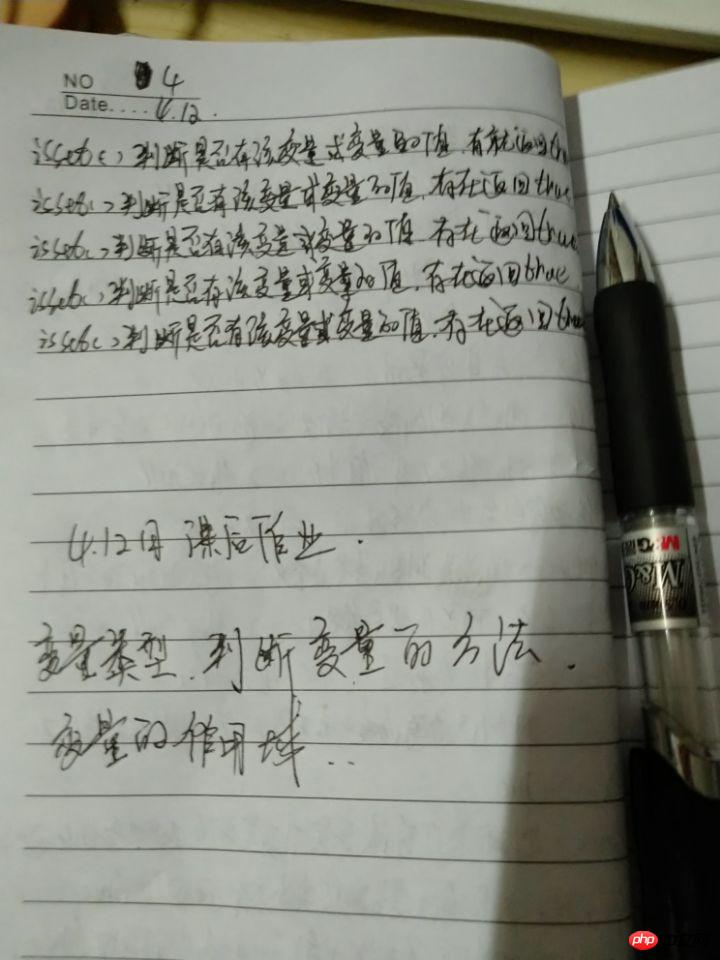 NO 4
Date.... 4.12.
isset()判断是否有该变量或变量的值,有就返回tru
isset()判断是否有该变量或变量的值,存在返回true
isset()判断是否有该变量或变量的值 存在返回true
isset()判断是否有该变量或变量的值,存在返回true
isset()判断是否有该变量或变量的值,存在返回true
4.12日 课后作业.
变量类型.判断变量的方法.
变量的作用域...
M&G
M&G
php